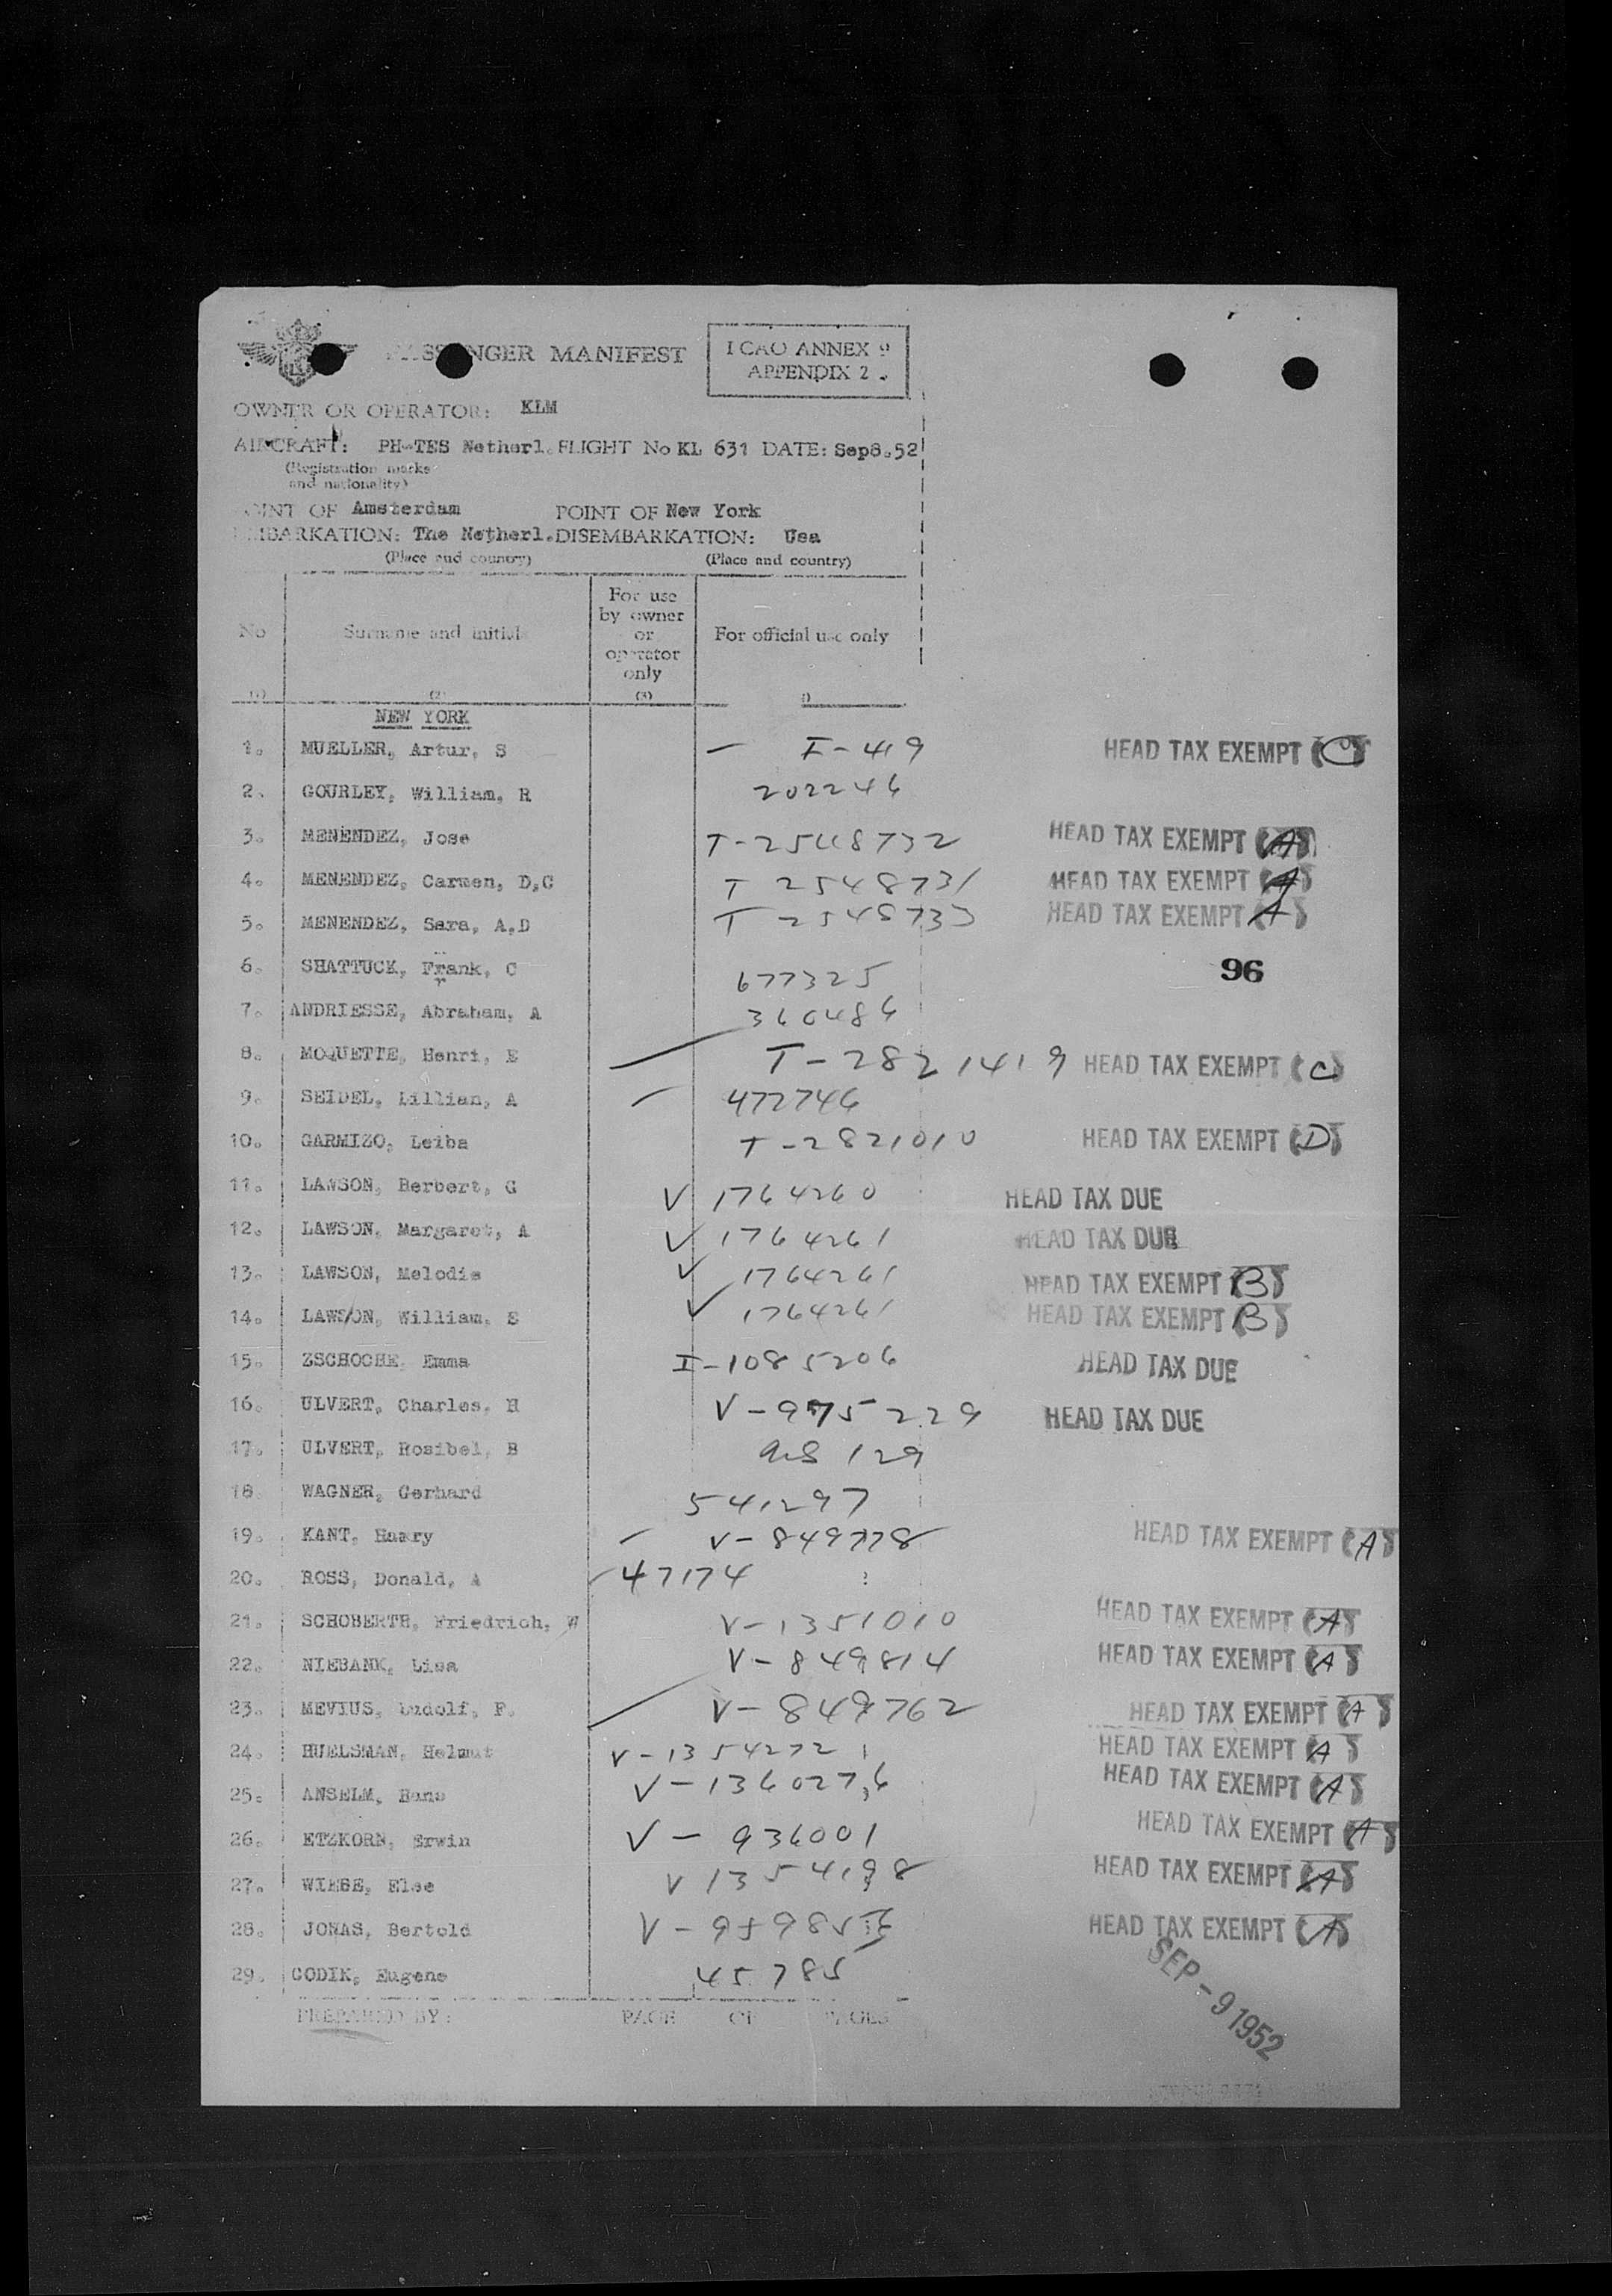 PASSENGER MANIFEST
ICAO ANNEX 9
APPENDIX 2.
OWNER OR OPERATOR: KLM
AIRCRAFT: PH-TES Netherl. FLIGHT No KL 631 DATE: Sep8.52
(Registration marks
and nationality)
POINT OF Amsterdam POINT OF New York
EMBARKATION: The Netherl. DISEMBARKATION: Usa
(Place and country) (Place and country)
No Surname and initials For use by owner or operator only For official use only
(1) (2) (3)
NEW YORK
1. MUELLER, Artur, S — I-419 HEAD TAX EXEMPT (C)
2. GOURLEY, William, R 202246
3. MENENDEZ, Jose T-2548732 HEAD TAX EXEMPT (A)
4. MENENDEZ, Carmen, D,C T 2548731 HEAD TAX EXEMPT (A)
5. MENENDEZ, Sara, A,D T-2548733 HEAD TAX EXEMPT (A)
6. SHATTUCK, Frank, C 677325
96
7. ANDRIESSE, Abraham, A 360486
8. MOQUETTE, Henri, E T-2821419 HEAD TAX EXEMPT (C)
9. SEIDEL, Lillian, A 472746
10. GARMIZO, Leiba T-2821010 HEAD TAX EXEMPT (D)
11. LAWSON, Herbert, G V 1764260 HEAD TAX DUE
12. LAWSON, Margaret, A V 1764261 HEAD TAX DUE
13. LAWSON, Melodie V 1764261 HEAD TAX EXEMPT (B)
14. LAWSON, William, S V 1764261 HEAD TAX EXEMPT (B)
15. ZSCHOCHE, Emma I-1085206 HEAD TAX DUE
16. ULVERT, Charles, H V-975229 HEAD TAX DUE
17. ULVERT, Rosibel, B 129
18. WAGNER, Gerhard 541297
19. KANT, Harry V-849778 HEAD TAX EXEMPT (A)
20. ROSS, Donald, A 47174
21. SCHOBERTH, Friedrich, W V-1351010 HEAD TAX EXEMPT (A)
22. NIEBANK, Lisa V-849814 HEAD TAX EXEMPT (A)
23. MEVIUS, Ludolf, F. V-849762 HEAD TAX EXEMPT (A)
24. HUELSMAN, Helmut V-1354272 HEAD TAX EXEMPT (A)
25. ANSELM, Hans V-1360276 HEAD TAX EXEMPT (A)
26. ETZKORN, Erwin V-936001 HEAD TAX EXEMPT (A)
27. WIEBE, Else V 1354198 HEAD TAX EXEMPT (A)
28. JONAS, Bertold HEAD TAX EXEMPT (A)
29. GODIK, Eugene 45785
SEP-9 1952
PREPARED BY: PAGE OF PAGES